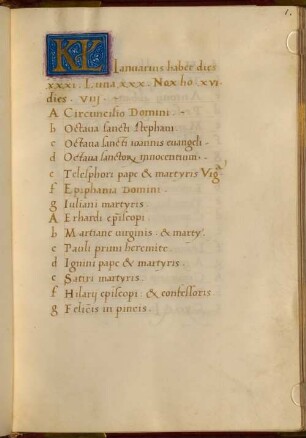 1.
KL Ianuarius habet dies
xxxi. Luna xxx. Nox ho. xvi.
dies . viij .
A Circuncisio Domini.
b Octava sancti Stephani.
c Octava sancti ioannis euangeli.
d Octava sanctor. innocentium.
e Telesphori pape & martyris Viga
f Epiphania Domini.
g Iuliani martyris.
A Erhardi episcopi.
b Martiane virginis & marty.
c Pauli primi heremite.
d Iginii pape & martyris.
e Satiri martyris.
f Hilarij episcopi & confessoris
g Felicis in pincis.